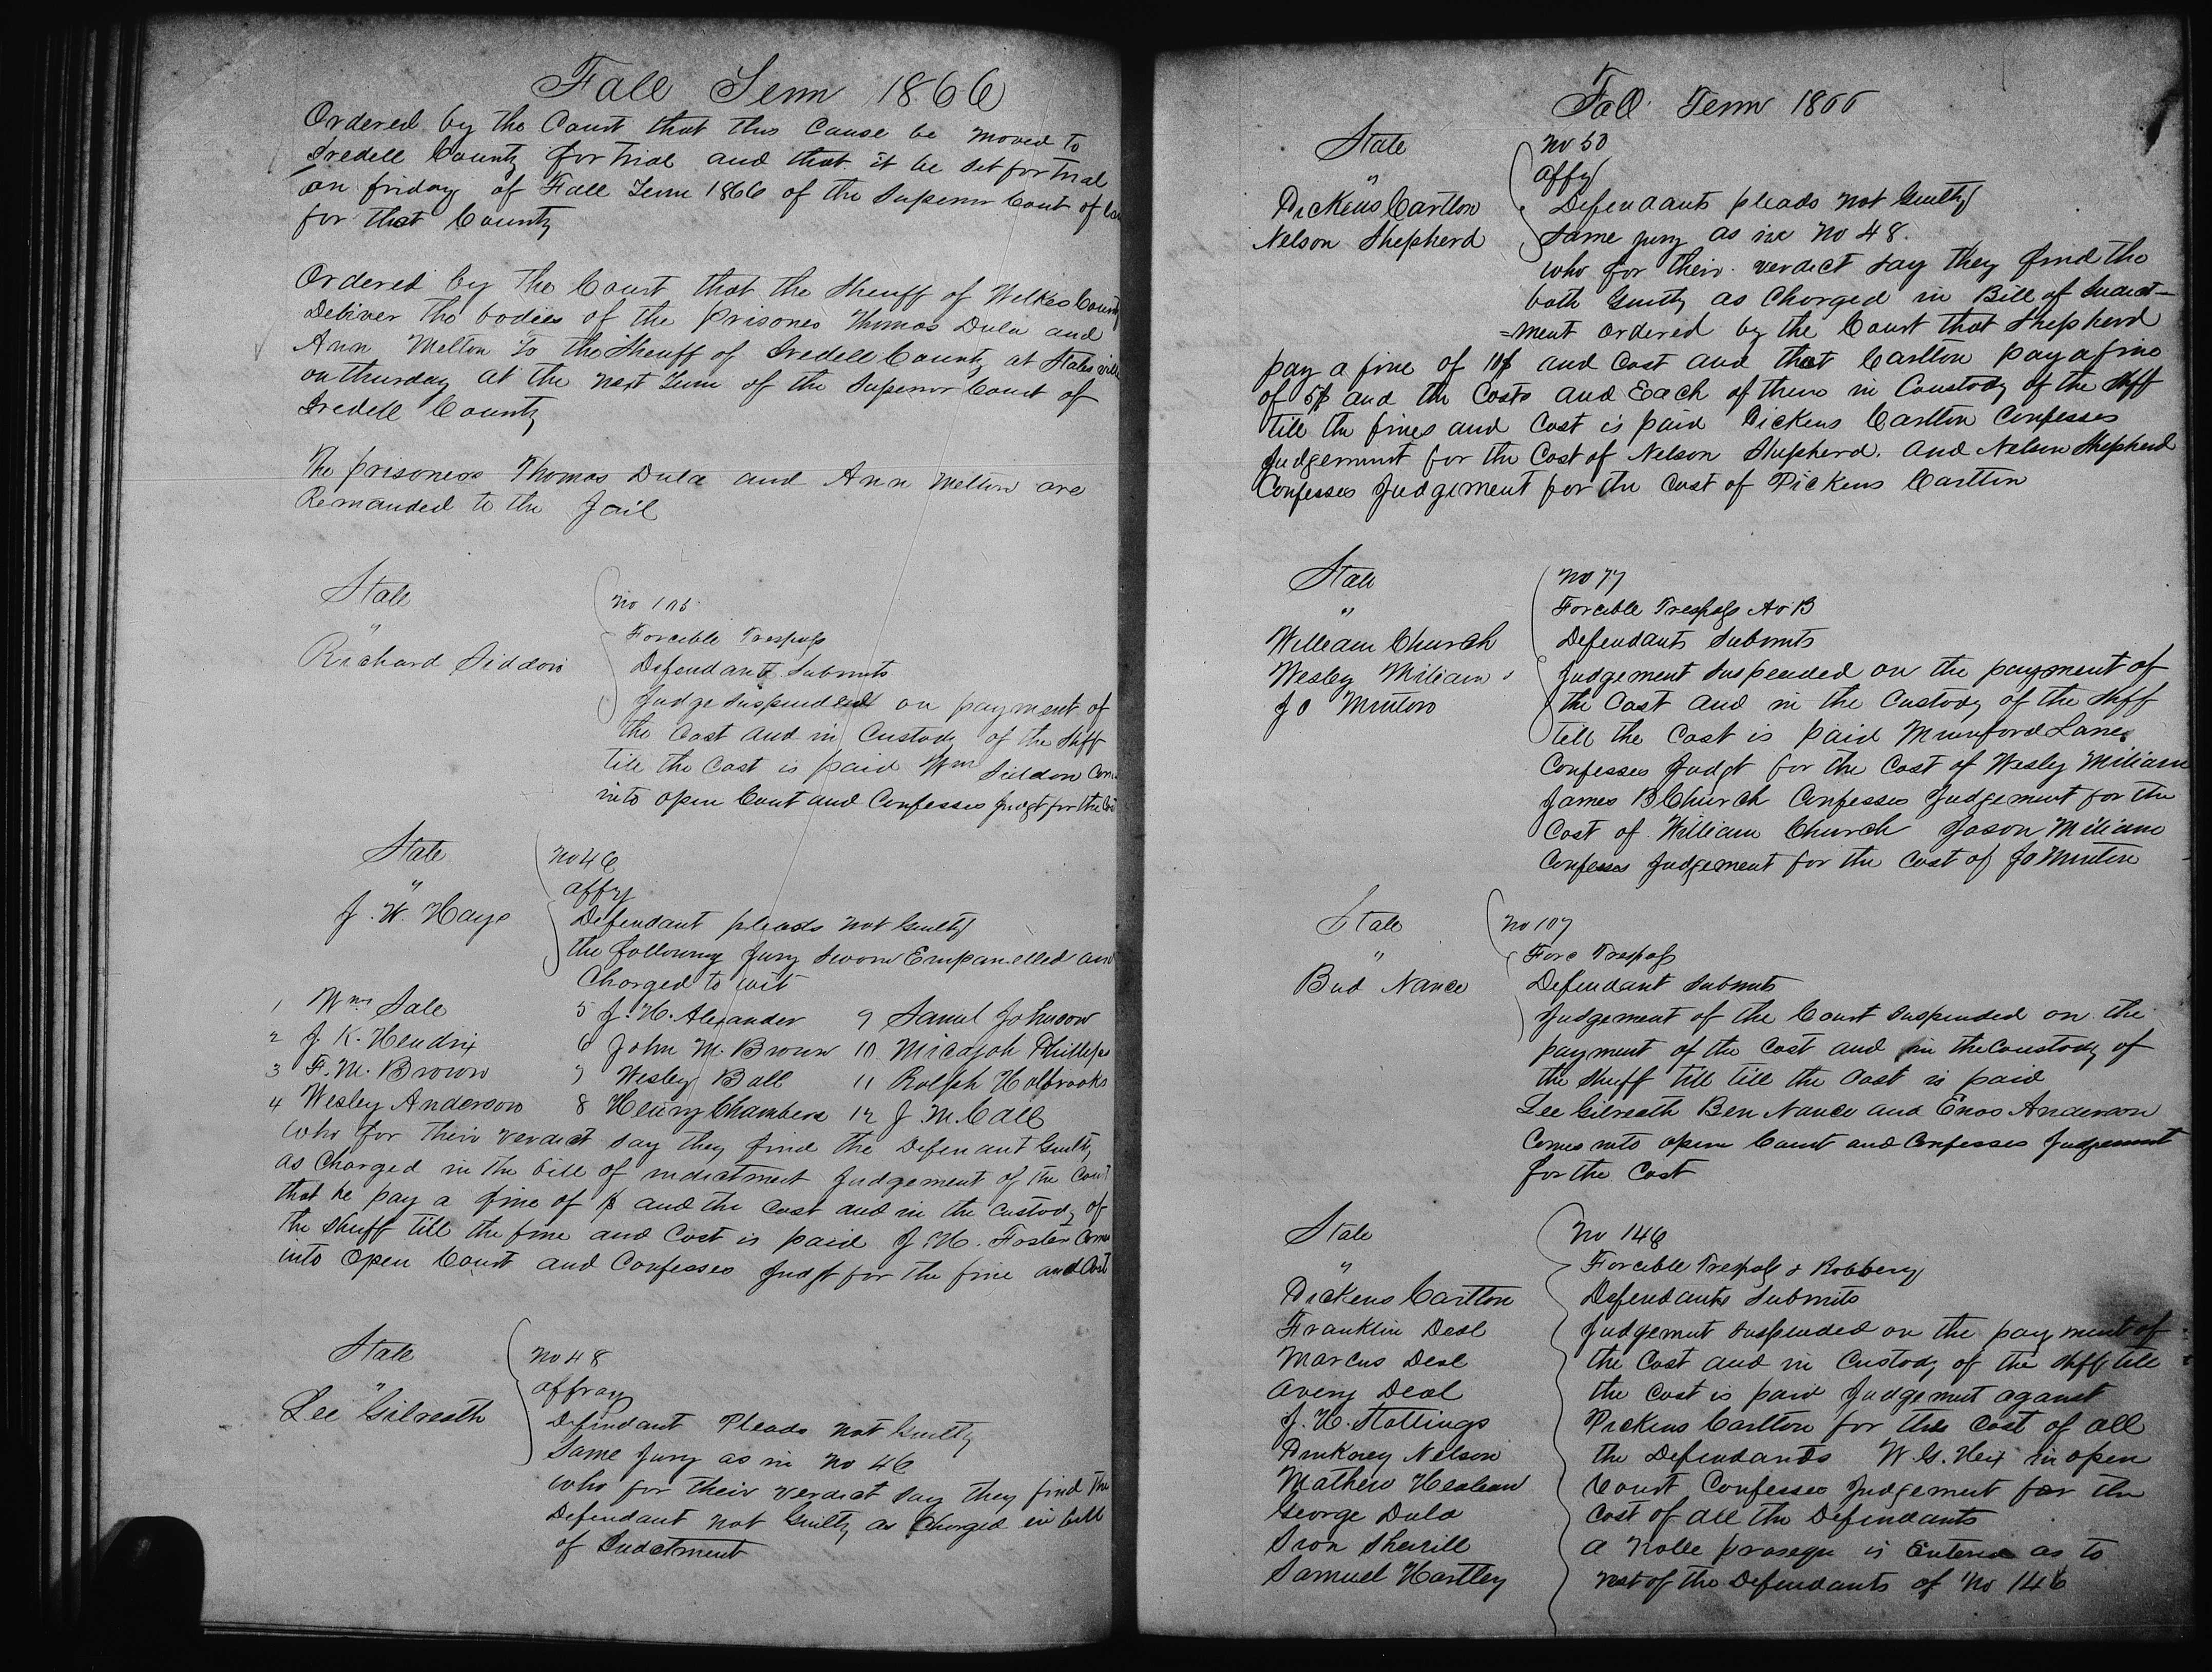 Fall Term 1866
Ordered by the Court that this Cause be moved to
Iredell County for trial and that it be set for trial
on friday of Fall Term 1866 of the Superior Court of
for that County
Ordered by the Court that the Sheriff of Wilkes County
Deliver the bodies of the prisones Thomas Dula and
Ann Melton to the Sheriff of Iredell County at Statesville
on thursday at the next Term of the Superior Court of
Iredell County
The prisoners Thomas Dula and Ann Melton are
Remanded to the Jail
State
"
Richard Siddon
no 105
Forcible Trespass
Defendant Submits
Judge Suspended on payment of
the Cost and in Custody of the Shff
till the Cost is paid Wm Siddon
into open Court and Confesses Judgt for the
State
"
J. W. Hays
no 46
affy
Defendant pleads not Guilty
the following Jury Sworn Empanelled and
Charged to wit
1 Wm Sale 5 J. H. Alexander 9 Samul Johnson
2 J. K. Hendrix 6 John M. Brown 10 Micajah Phillips
3 F. M. Brown 7 Wesley Ball 11 Ralph Holbrooks
4 Wesley Anderson 8 Henry Chambers 12 J. M. Call
who for their verdict say they find the Defenant Guilty
as Charged in the bill of indictment Judgement of the Court
that he pay a fine of and the Cost and in the Custody of
the Sheff till the fine and Cost is paid J. H. Foster Comes
into Open Court and Confesses Judgt for the fine and Cost
State
"
Lee Gilreath
no 48
affray
Defendant Pleads not Guilty
Same Jury as in no 46
who for their verdict say they find the
Defendant not Guilty as Charged in bill
of Indctment
Fall Term 1866
State
"
Pickens Carlton
Nelson Shepherd
no 50
affy
Defendants pleads not Guilty
Same jury as in no 48.
who for their verdict say they find the
both Guilty as Charged in Bill of Indict-
=ment ordered by the Court that Shepherd
pay a fine of 10$ and Cost and that Carlton pay a fine
of 5$ and the Costs and Each of them in Coustody of the Shff
till the fines and Cost is paid Pickens Carlton Confesses
Judgement for the Cost of Nelson Shepherd. and Nelson Shepherd
Confesses Judgement for the Cost of Pickens Carlton
State
"
William Church
Wesley Miliam
Jo Minton
no 77
Forcible Trespass A & B
Defendants Submits
Judgement Suspended on the payment of
the Cost and in the Custody of the Shff
till the Cost is paid Mumford Lane
Confesses Judgt for the Cost of Wesly Miliam
James B Church Confesses Judgement for the
Cost of William Church Jason Miliam
Confesses Judgement for the Cost of Jo Minton
State
"
Bud Nance
no 107
Forc Trespass
Defendant Submits
Judgement of the Court Suspended on the
payment of the Cost and in the Coustody of
the Sheff till till the Cost is paid
Lee Gilreath Ben Nance and Enos Anderson
Comes into open Court and Confesses Judgement
for the Cost
State
"
Pickens Carlton
Franklin Deal
Marcus Deal
Avery Deal
J. H. Stallings
Pinkney Nelson
Mathew
George Dula
Sherrill
Samuel Hartley
no 146
Forcible Trespass & Robbery
Defendants Submits
Judgemnt Suspended on the payment of
the Cost and in Custody of the Shff till
the Cost is paid Judgement against
Pickens Carlton for the Cost of all
the Defendants W. G. Hix in open
Court Confesses Judgement for the
Cost of all the Defendants
A Nolle prosequi is Entered as to
rest of the Defendants of No 146